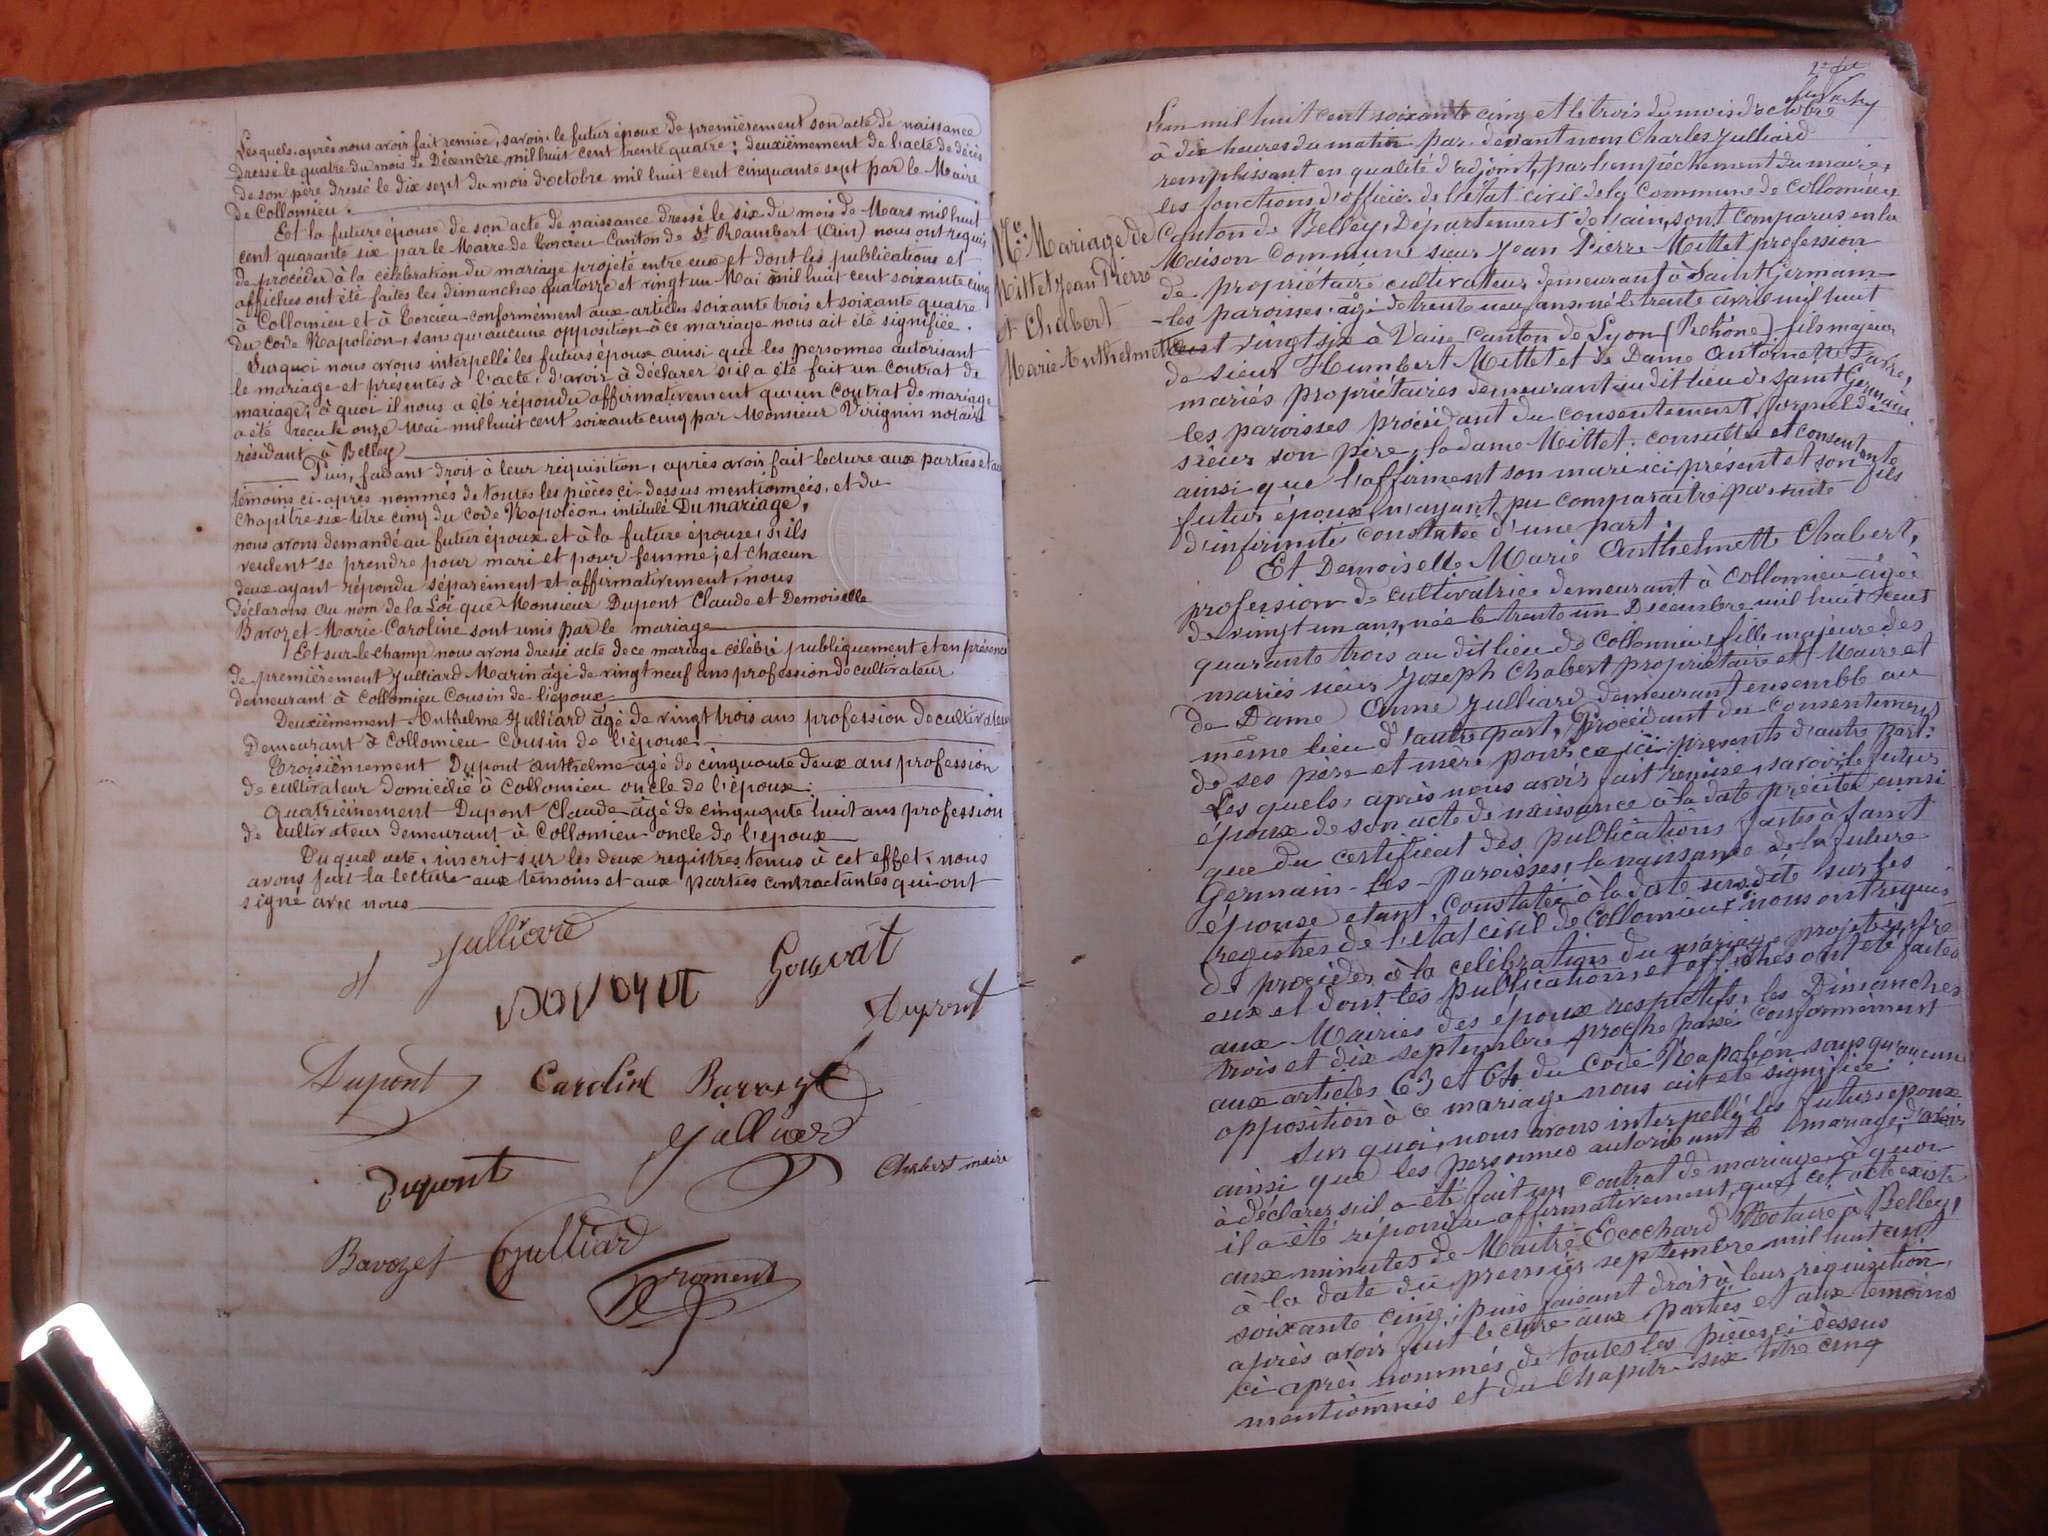 Lesquels, après nous avoir fait remise, savoir: le futur époux de premièrement son acte de naissance
dressé le quatre du mois de Décembre mil huit cent trente quatre; deuxièmement de l'acte de décès
de son père dressé le dix sept du mois d'octobre mil huit cent cinquante sept par le Maire
de Collomieu.
Et la future épouse de son acte de naissance dressé le six du mois de Mars mil huit
cent quarante six par le Marre de Torcieu Canton de St Rambert (Ain) nous ont requis
de procéder à la célébration du mariage projeté entre eux et dont les publications et
affiches ont été faites les dimanches quatorze et vingt un Mai mil huit cent soixante cinq
à Collomieu et à Torcieu conformément aux articles soixante trois et soixante quatre
du Code Napoléon, sans qu'aucune opposition à ce mariage nous ait été signifiée.
Surquoi nous avons interpellé les futurs époux ainsi que les personnes autorisant
le mariage et présentes à l'acte, d'avoir à déclarer s'il a été fait un contrat de
mariage; à quoi il nous a été répondu affirmativement qu'un contrat de mariage
a été reçu le onze Mai mil huit cent soixante cinq par Monsieur Virignin notaire
résidant à Belley
Puis, faisant droit à leur réquisition, après avoir fait lecture aux parties et aux
témoins ci-après nommés de toutes les pièces ci-dessus mentionnées, et du
chapitre six titre cinq du code Napoléon, intitulé Du mariage,
nous avons demandé au futur époux et à la future épouse, s'ils
veulent se prendre pour mari et pour femme; et chacun
deux ayant répondu séparément et affirmativement, nous
déclarons au nom de la Loi que Monsieur Dupont Claude et Demoiselle
Barozet Marie Caroline sont unis par le mariage
Et sur le champ nous avons dressé acte de ce mariage célébré publiquement et en présence
de premièrement Julliard Marin âgé de vingt neuf ans profession de cultivateur
demeurant à Collomieu Cousin de l'époux
Deuxièmement Anthelme Julliard âgé de vingt trois ans profession de cultivateur
Demeurant à Collomieu Cousin de l'époux.
Troisièmement Dupont Anthelme âgé de cinquante deux ans profession
de cultivateur domicilié à Collomieu oncle de l'époux.
Quatrièmement Dupont Claude âgé de cinquante huit ans profession
de cultivateur demeurant à Collomieu oncle de l'époux
Du quel acte, inscrit sur les deux registres tenus à cet effet, nous
avons fait la lecture aux témoins et aux parties contractantes qui ont
signé avec nous
Dupont
Dupont Caroline Barozet
Dupont
Chabert maire
Barozet Julliard
Froment
L'an mil huit cent soixante cinq et le trois du mois d'octobre
à dix heures du matin par devant nous Charles Julliard
remplissant en qualité d'adjoint, par l'empêchement du maire,
les fonctions d'officier de l'état civil de la Commune de Collomieu
Nce Mariage de
Mittet Jean Pierre
et Chabert
Marie Anthelmette
Canton de Belley, Département de l'ain, sont comparus en la
Maison Commune sieur Jean Pierre Mittet profession
de propriétaire cultivateur demeurant à Saint Germain
-les paroisses âgé de trente neuf ans né le trente avril mil huit
cent vingt six à Vaise Canton de Lyon (Rhône) fils majeur
de sieur Humbert Mittet et de Dame Antoinette Favre,
mariés propriétaires demeurant au dit lieu de Saint Germain
les paroisses procédant du consentement formel de
sieur son père, la dame Mittet consultée et consentante
ainsi que l'affirment son mari ici présent et son fils
futur époux n'ayant pu comparaître par suite
d'infirmité constatée d'une part.
Et Demoiselle Marie Anthelmette Chabert,
profession de cultivatrice demeurant à Collomieu âgée
de vingt un ans, née le trente un Décembre mil huit cent
quarante trois au dit lieu de Collomieu, fille majeure des
mariés sieur Joseph Chabert propriétaire et Maire et
de Dame Anne Julliard demeurant ensemble au
même lieu d'autre part, Procédant du consentement
de ses père et mère pour ce ici présents d'autre part.
Les quels, après nous avoir fait remise, savoir: le futur
époux de son acte de naissance à la date précitée ainsi
que du certificat des publications faites à Saint
Germain-les-paroisses, la naissance de la future
épouse étant constatée à la date susdite sur les
registres de l'état civil de Collomieu; nous ont requis
de procéder à la célébration du mariage projeté entre
eux et dont les publications et affiches ont été faites
aux Mairies des époux respectifs, les Dimanches
trois et dix septembre proche passé conformément
aux articles 63 et 64 du Code Napoléon sans qu'aucune
opposition à ce mariage nous ait été signifiée
Sur quoi, nous avons interpellé les futurs époux
ainsi que les personnes autorisant le mariage, d'avoir
à déclarer s'il a été fait un contrat de mariage, à quoi
il a été répondu affirmativement, que cet acte existe
aux minutes de Maître Ecochard Notaire à Belley,
à la date du premier septembre mil huit cent
soixante cinq; puis faisant droit à leur réquisition,
après avoir fait lecture aux parties et aux témoins
ci après nommés de toutes les pièces ci dessus
mentionnées et du Chapitre six titre cinq